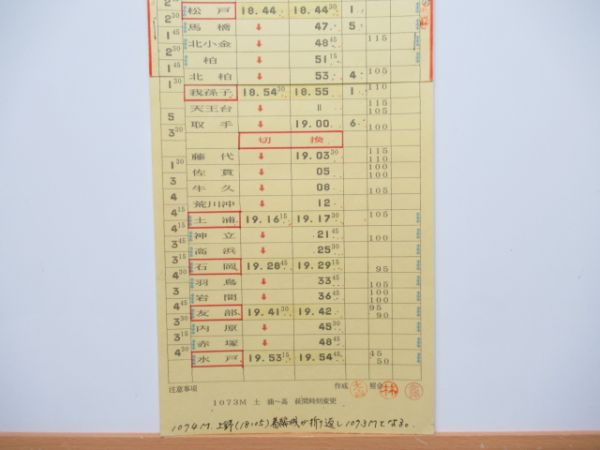 2 30 松戸 18.44 18.44 30 1
1 45 馬橋 ↓ 47 5
2 北小金 ↓ 48 45 115
1 45 柏 ↓ 51 15
2 北柏 ↓ 53 4 105
1 30 我孫子 18.54 30 18.55 1 110
天王台 ↓ 〃 105
5 取手 ↓ 19.00 6 100
3 30 切換
藤代 ↓ 19.03 30 115 110
1 30 佐貫 ↓ 05 100
3 牛久 ↓ 08 105
4 荒川沖 ↓ 12
4 15 土浦 19.16 15 19.17 30 105
4 15 神立 ↓ 21 45 100
3 45 高浜 ↓ 25 30
3 15 石岡 19.28 45 19.29 15 95
4 30 羽鳥 ↓ 33 45 105
3 岩間 ↓ 36 45 100 100
4 45 友部 19.41 30 19.42 95 90
3 30 内原 ↓ 45 30
3 15 赤塚 ↓ 48 45
4 30 水戸 19.53 15 19.54 45 45 50
注意事項 作成 照合 林
1073M 土浦〜高 萩間時刻変更
1074M 上野(18:05)着編成が折り返し1073Mとなる。